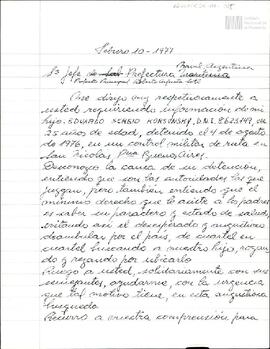 Febrero 10-1977
Naval Argentina
Sr Jefe de Prefectura
Prefecto Principal
Me dirijo muy respetuosamente a
usted requiriendo información de mi
hijo: EDUARDO SERGIO KORSUNSKY, D.N.I.
25 años de edad, detenido el 4 de agosto
de 1976, en un control militar de ruta en
San Nicolás, Pcia Buenos Aires.
Desconozco la causa de su detención,
entiendo que son las autoridades las que
juzgan, pero también entiendo que el
mínimo derecho que le asiste a los padres
es saber su paradero y estado de salud,
evitando así el desesperado y angustioso
deambular por el país, de cuartel en
cuartel buscando a nuestro hijo, rogan
do y rezando por ubicarlo
Ruego a usted, solidariamente con sus
semejantes, ayudarme, con la urgencia
que tal motivo tiene, en esta angustiosa
búsqueda.
Recurro a vuestra comprensión para